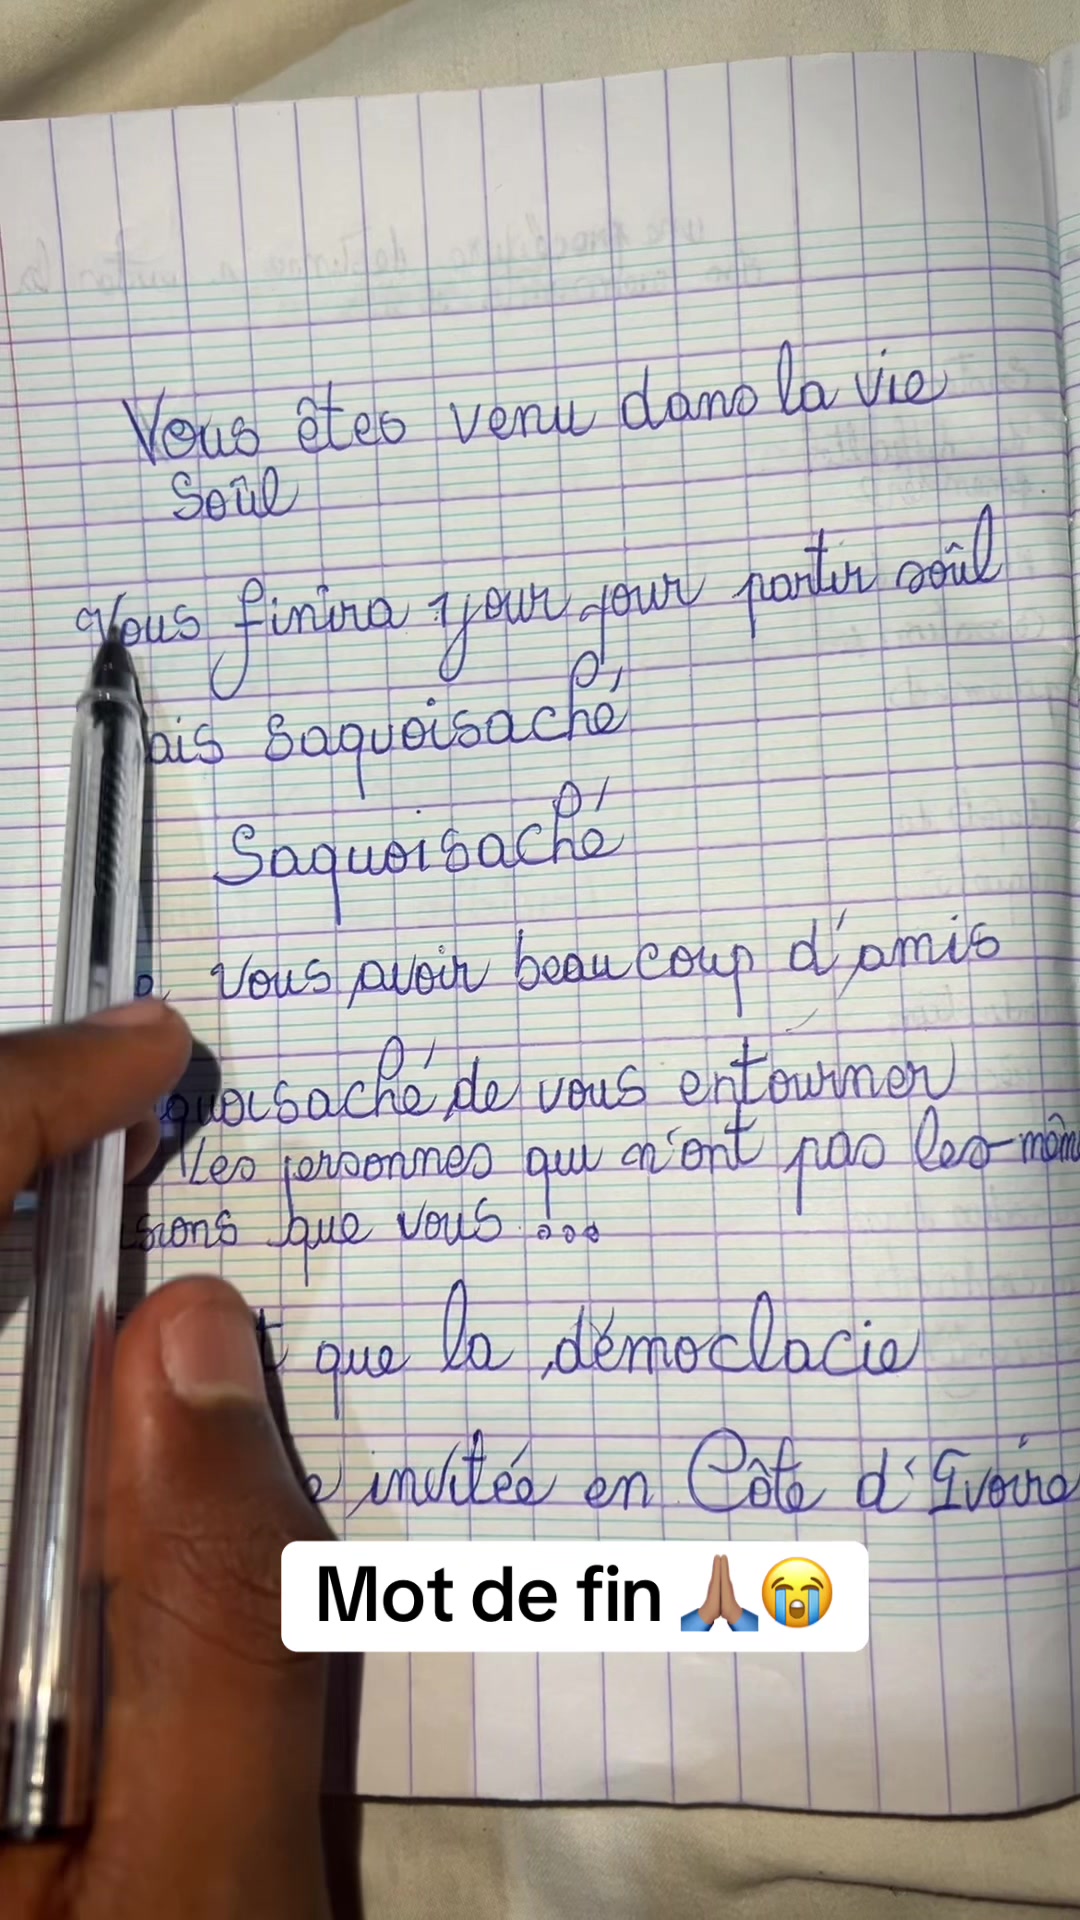 Vous êtes venu dans la vie
Soûl
Vous finira your jour partir soûl
ais saquoisaché
Saquoisaché
Vous avoir beaucoup d'amis
quoisaché de vous entourner
les personnes qui n'ont pas les mêm
sions que vous ...
t que la démoclacie
e invitée en Côte d'Ivoire
Mot de fin 🙏🏽😭